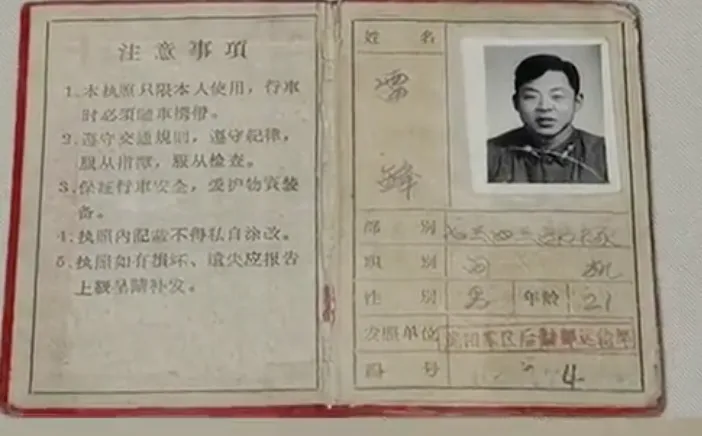 注意事項
1.本执照只限本人使用，行車
时必須随車携带。
2.遵守交通規則，遵守紀律，
服从指揮，服从檢查。
3.保証行車安全，爱护物資装
备。
4.执照內記載不得私自涂改。
5.执照如有損坏、遺失应报告
上級呈請补发。
姓名
雷
鋒
部别
職别 司机
性别 男 年龄 21
发照单位 沈阳軍区后勤部运输部
号 4